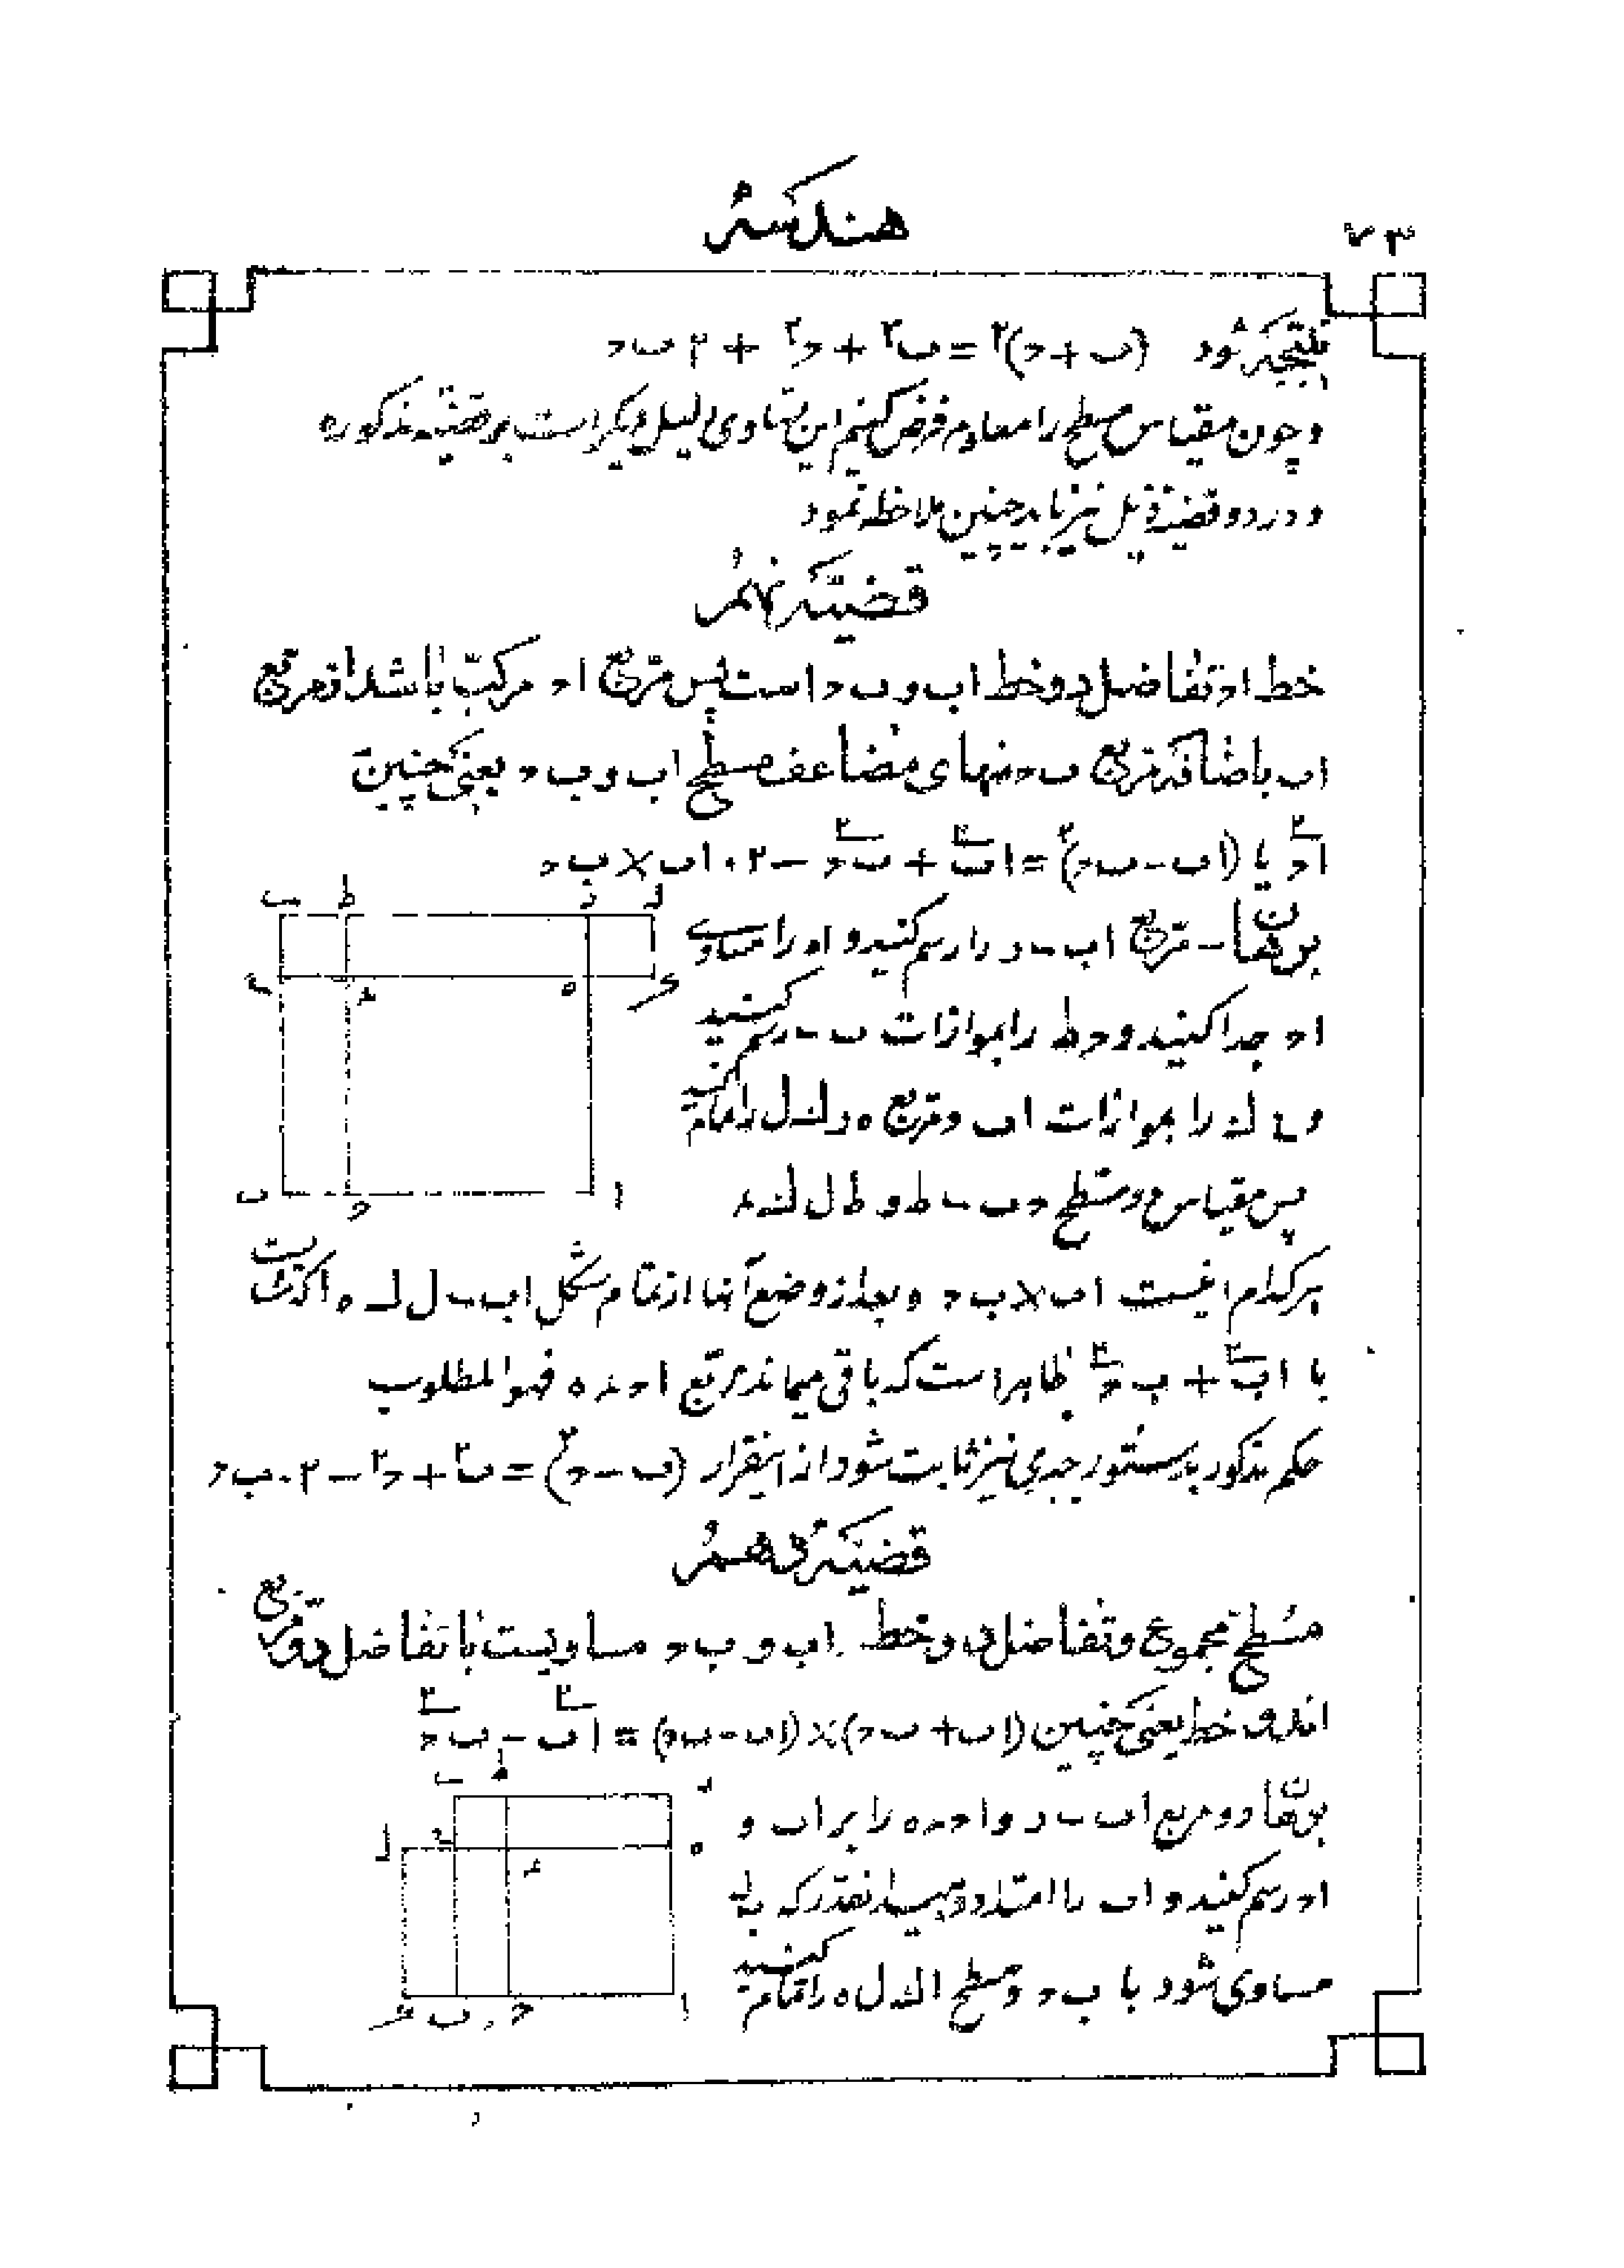 هندسه
۷۳
نتیجه شود (ب + د)۲ = ب۲ + د۲ + ۲ ب د
و چون مقیاس سطح را معلوم فرض کنیم این تساوی دلیل دیگر است بر قضیه مذکوره
و در دو قضیه ذیل نیز باید چنین ملاحظه نمود
قضیه نهم
خط اد تفاضل دو خط اب و ب د است پس مربع اد مرکب باشد از مربع
اب باضافه مربع ب د منهای مضاعف مسطح اب و ب د یعنی چنین
اد۲ یا (اب - ب د)۲ = اب۲ + ب د۲ - ۲۰ اب × ب د
برهان - مربع اب را رسم کنید و اه را مساوی
اد جدا کنید و د ط را بموازات ب رسم کنید
را بموازات اب و مربع را تمام کنید
پس مقیاس دو سطح
هر کدام اب × ب د و بعد از وضع آنها از تمام شکل
با اب۲ + ب د۲ ظاهر است که باقی میماند مربع فهو المطلوب
حکم مذکور بدستور جبری نیز ثابت شود از اینقرار (ب - د)۲ = ب۲ + د۲ - ۲۰ ب د
قضیه دهم
مسطح مجموع و تفاضل دو خط اب و ب د مساویست با تفاضل دو مربع
اندو خط یعنی چنین (اب + ب د) × (اب - ب د) = اب۲ - ب د۲
برهان دو مربع را بر اب و
اد رسم کنید و اب را امتداد دهید بقدر که
مساوی شود با ب د و سطح را تمام کنید